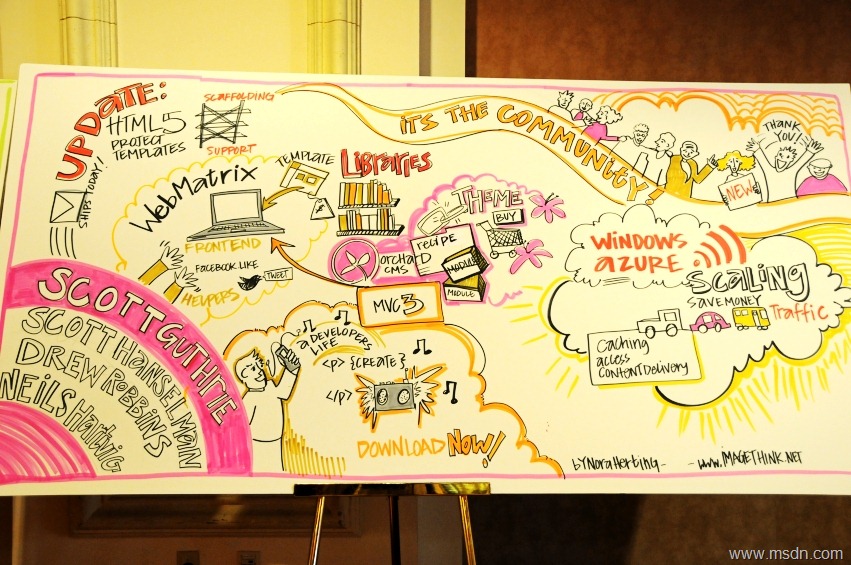 UPDATE:
HTML5
PROJECT
TEMPLATES
SHIPS TODAY!
SCAFFOLDING
SUPPORT
IT'S THE COMMUNITY!
THANK
YOU!
NEW
WebMatrix
TEMPLATE
FRONTEND
FACEBOOK LIKE
TWEET
HELPERS
LIBRARIES
THEME
BUY
orchard
CMS
RECIPE
MODULE
MODULE
MVC3
WINDOWS
AZURE
SCALING
SAVE MONEY
TRAFFIC
Caching
access
CONTENT DELIVERY
SCOTT GUTHRIE
SCOTT HANSELMAN
DREW ROBBINS
NEILS Hartvig
a DEVELOPERS
LIFE
<p> {CREATE}
</p>
DOWNLOAD NOW!
by Nora Herting - - www.IMAGETHINK.NET
www.msdn.com